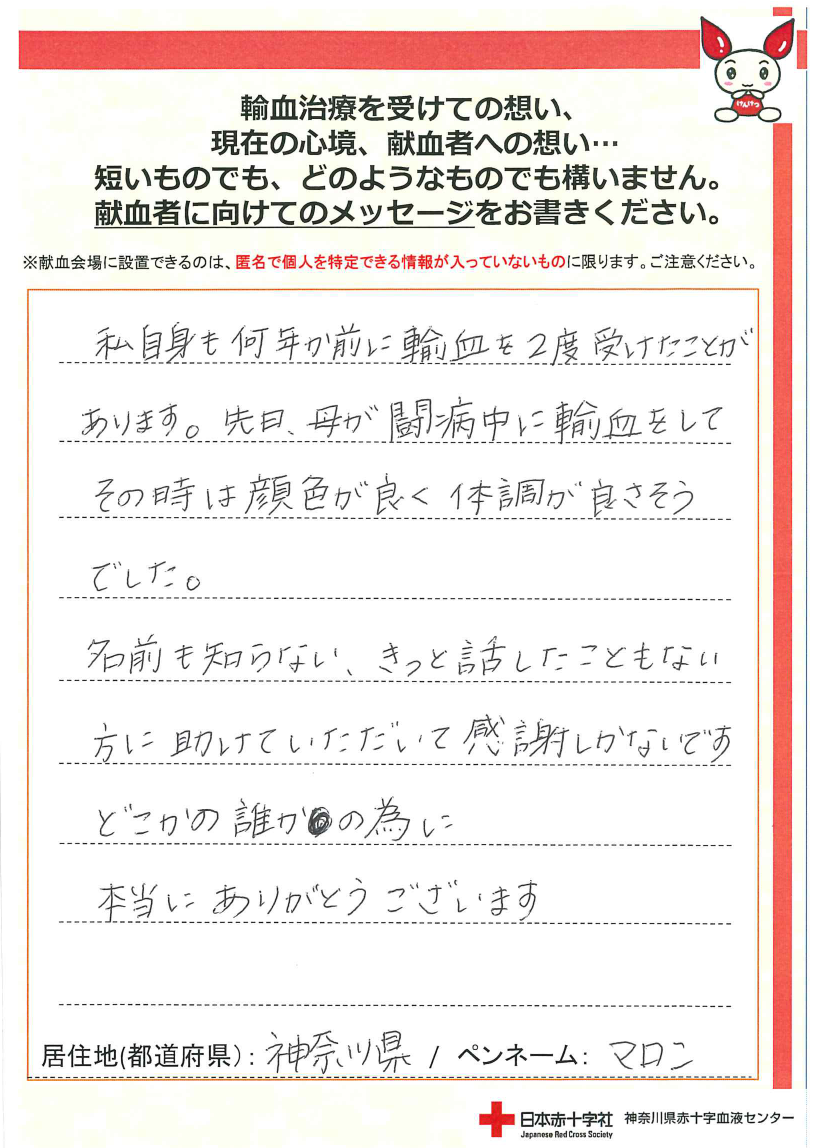 けんけつ
輸血治療を受けての想い、
現在の心境、献血者への想い…
短いものでも、どのようなものでも構いません。
献血者に向けてのメッセージをお書きください。
※献血会場に設置できるのは、匿名で個人を特定できる情報が入っていないものに限ります。ご注意ください。
私自身も何年か前に輸血を2度受けたことが
あります。先日、母が闘病中に輸血をして
その時は顔色が良く体調が良さそう
でした。
名前も知らない、きっと話したこともない
方に助けていただいて感謝しかないです
どこかの誰かの為に
本当にありがとうございます
居住地(都道府県):神奈川県 / ペンネーム: マロン
日本赤十字社 神奈川県赤十字血液センター
Japanese Red Cross Society